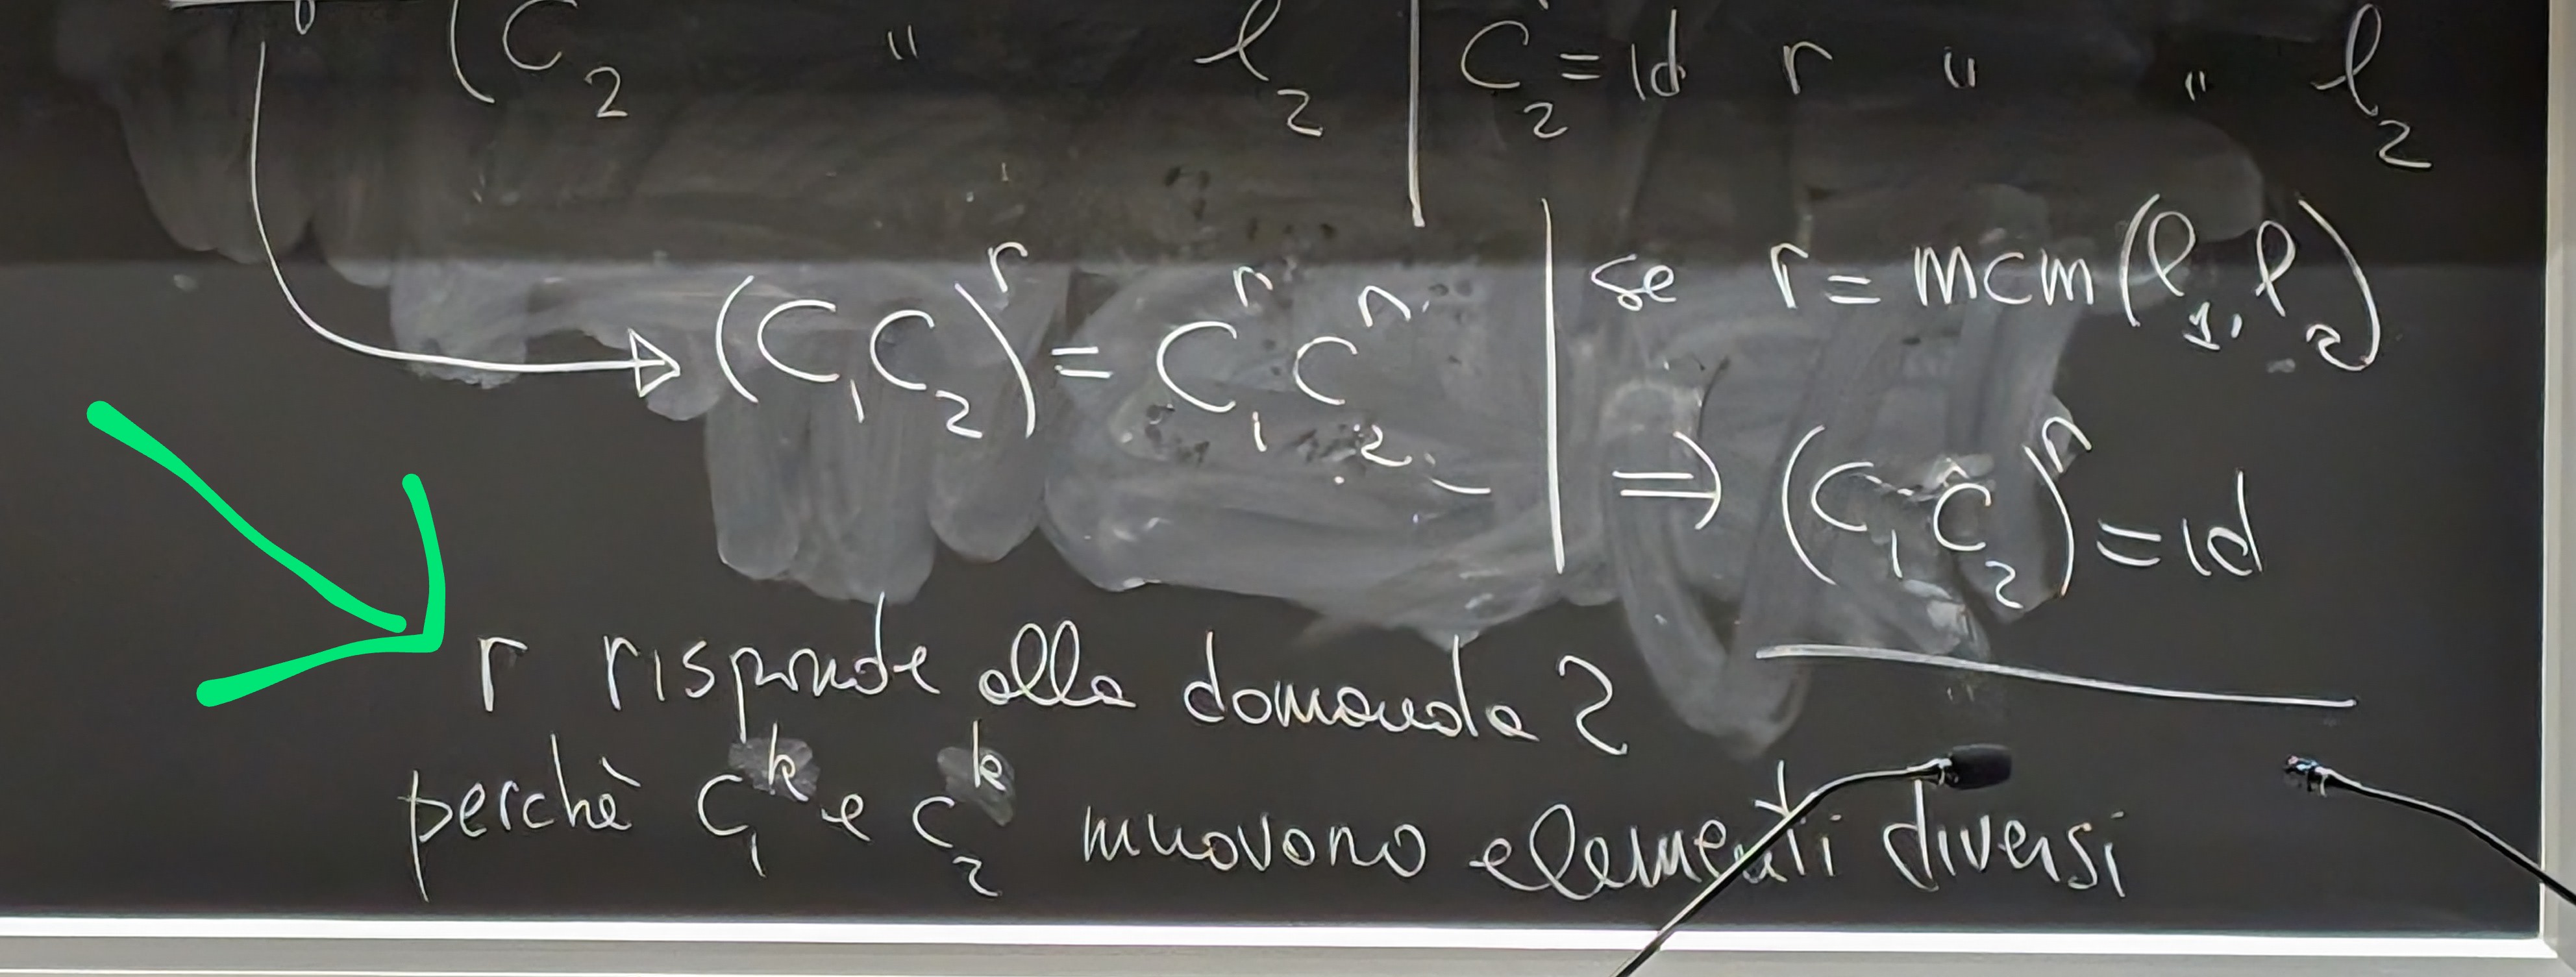 (C₂ " l₂ | C₂ʳ = id r " " l₂
(C₁C₂)ʳ = C₁ʳ C₂ʳ | se r = mcm(l₁, l₂)
⇒ (C₁C₂)ʳ = id
r risponde alla domanda?
perchè C₁ᵏ e C₂ᵏ muovono elementi diversi